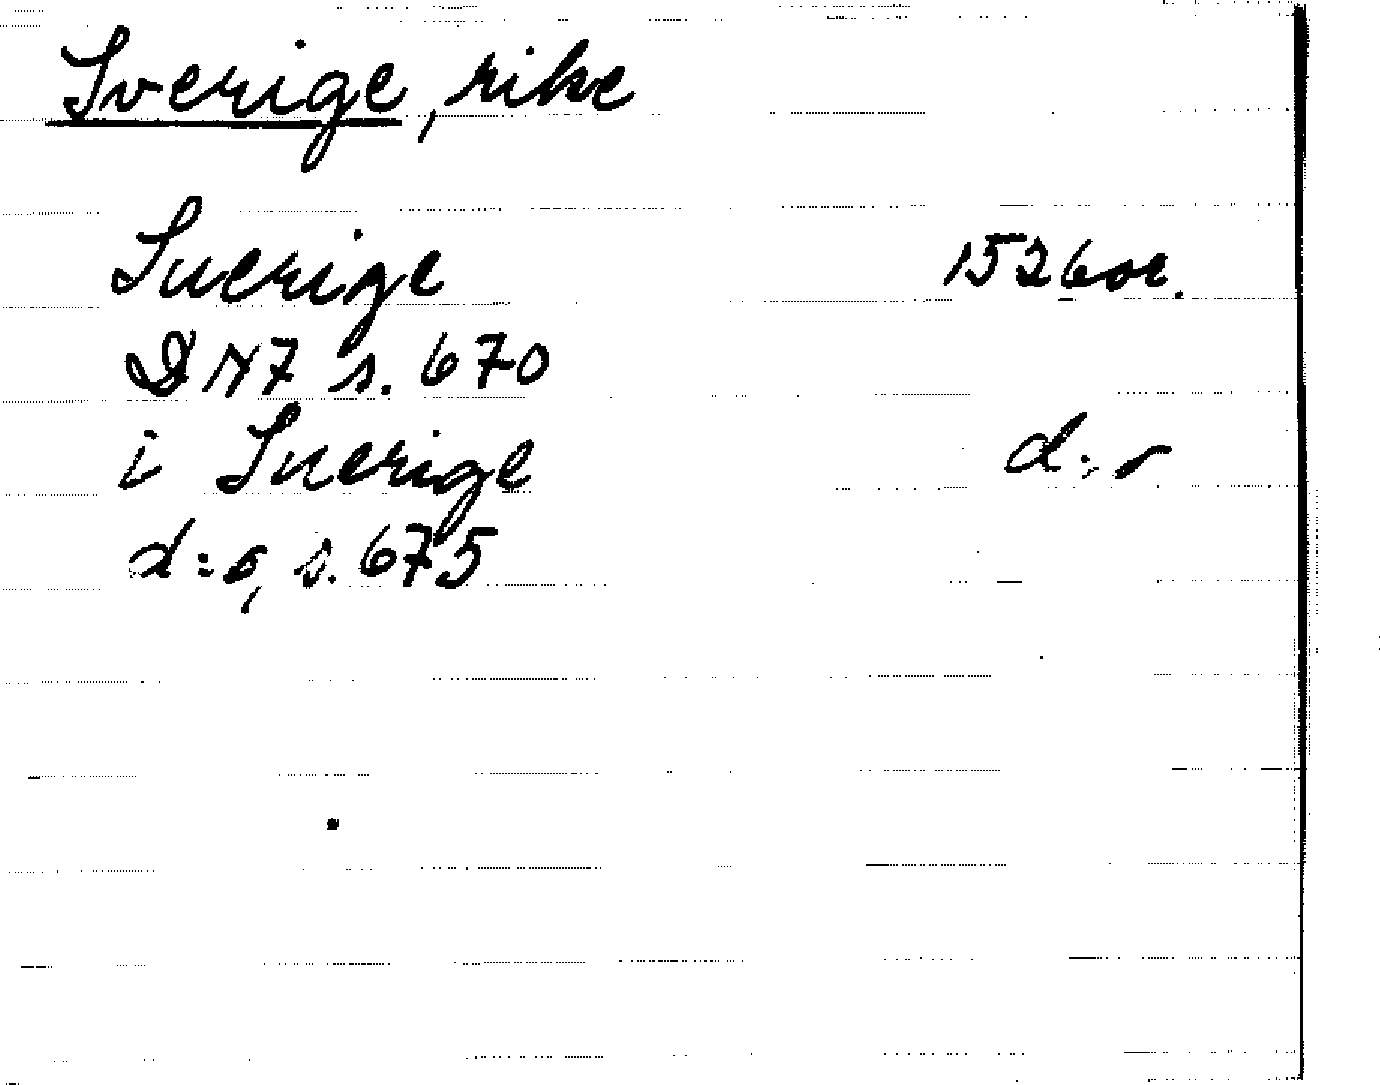 Sverige, rike
Suerige 1526 or.
DN 7 s. 670
i Suerige d:o
d:o, s. 675